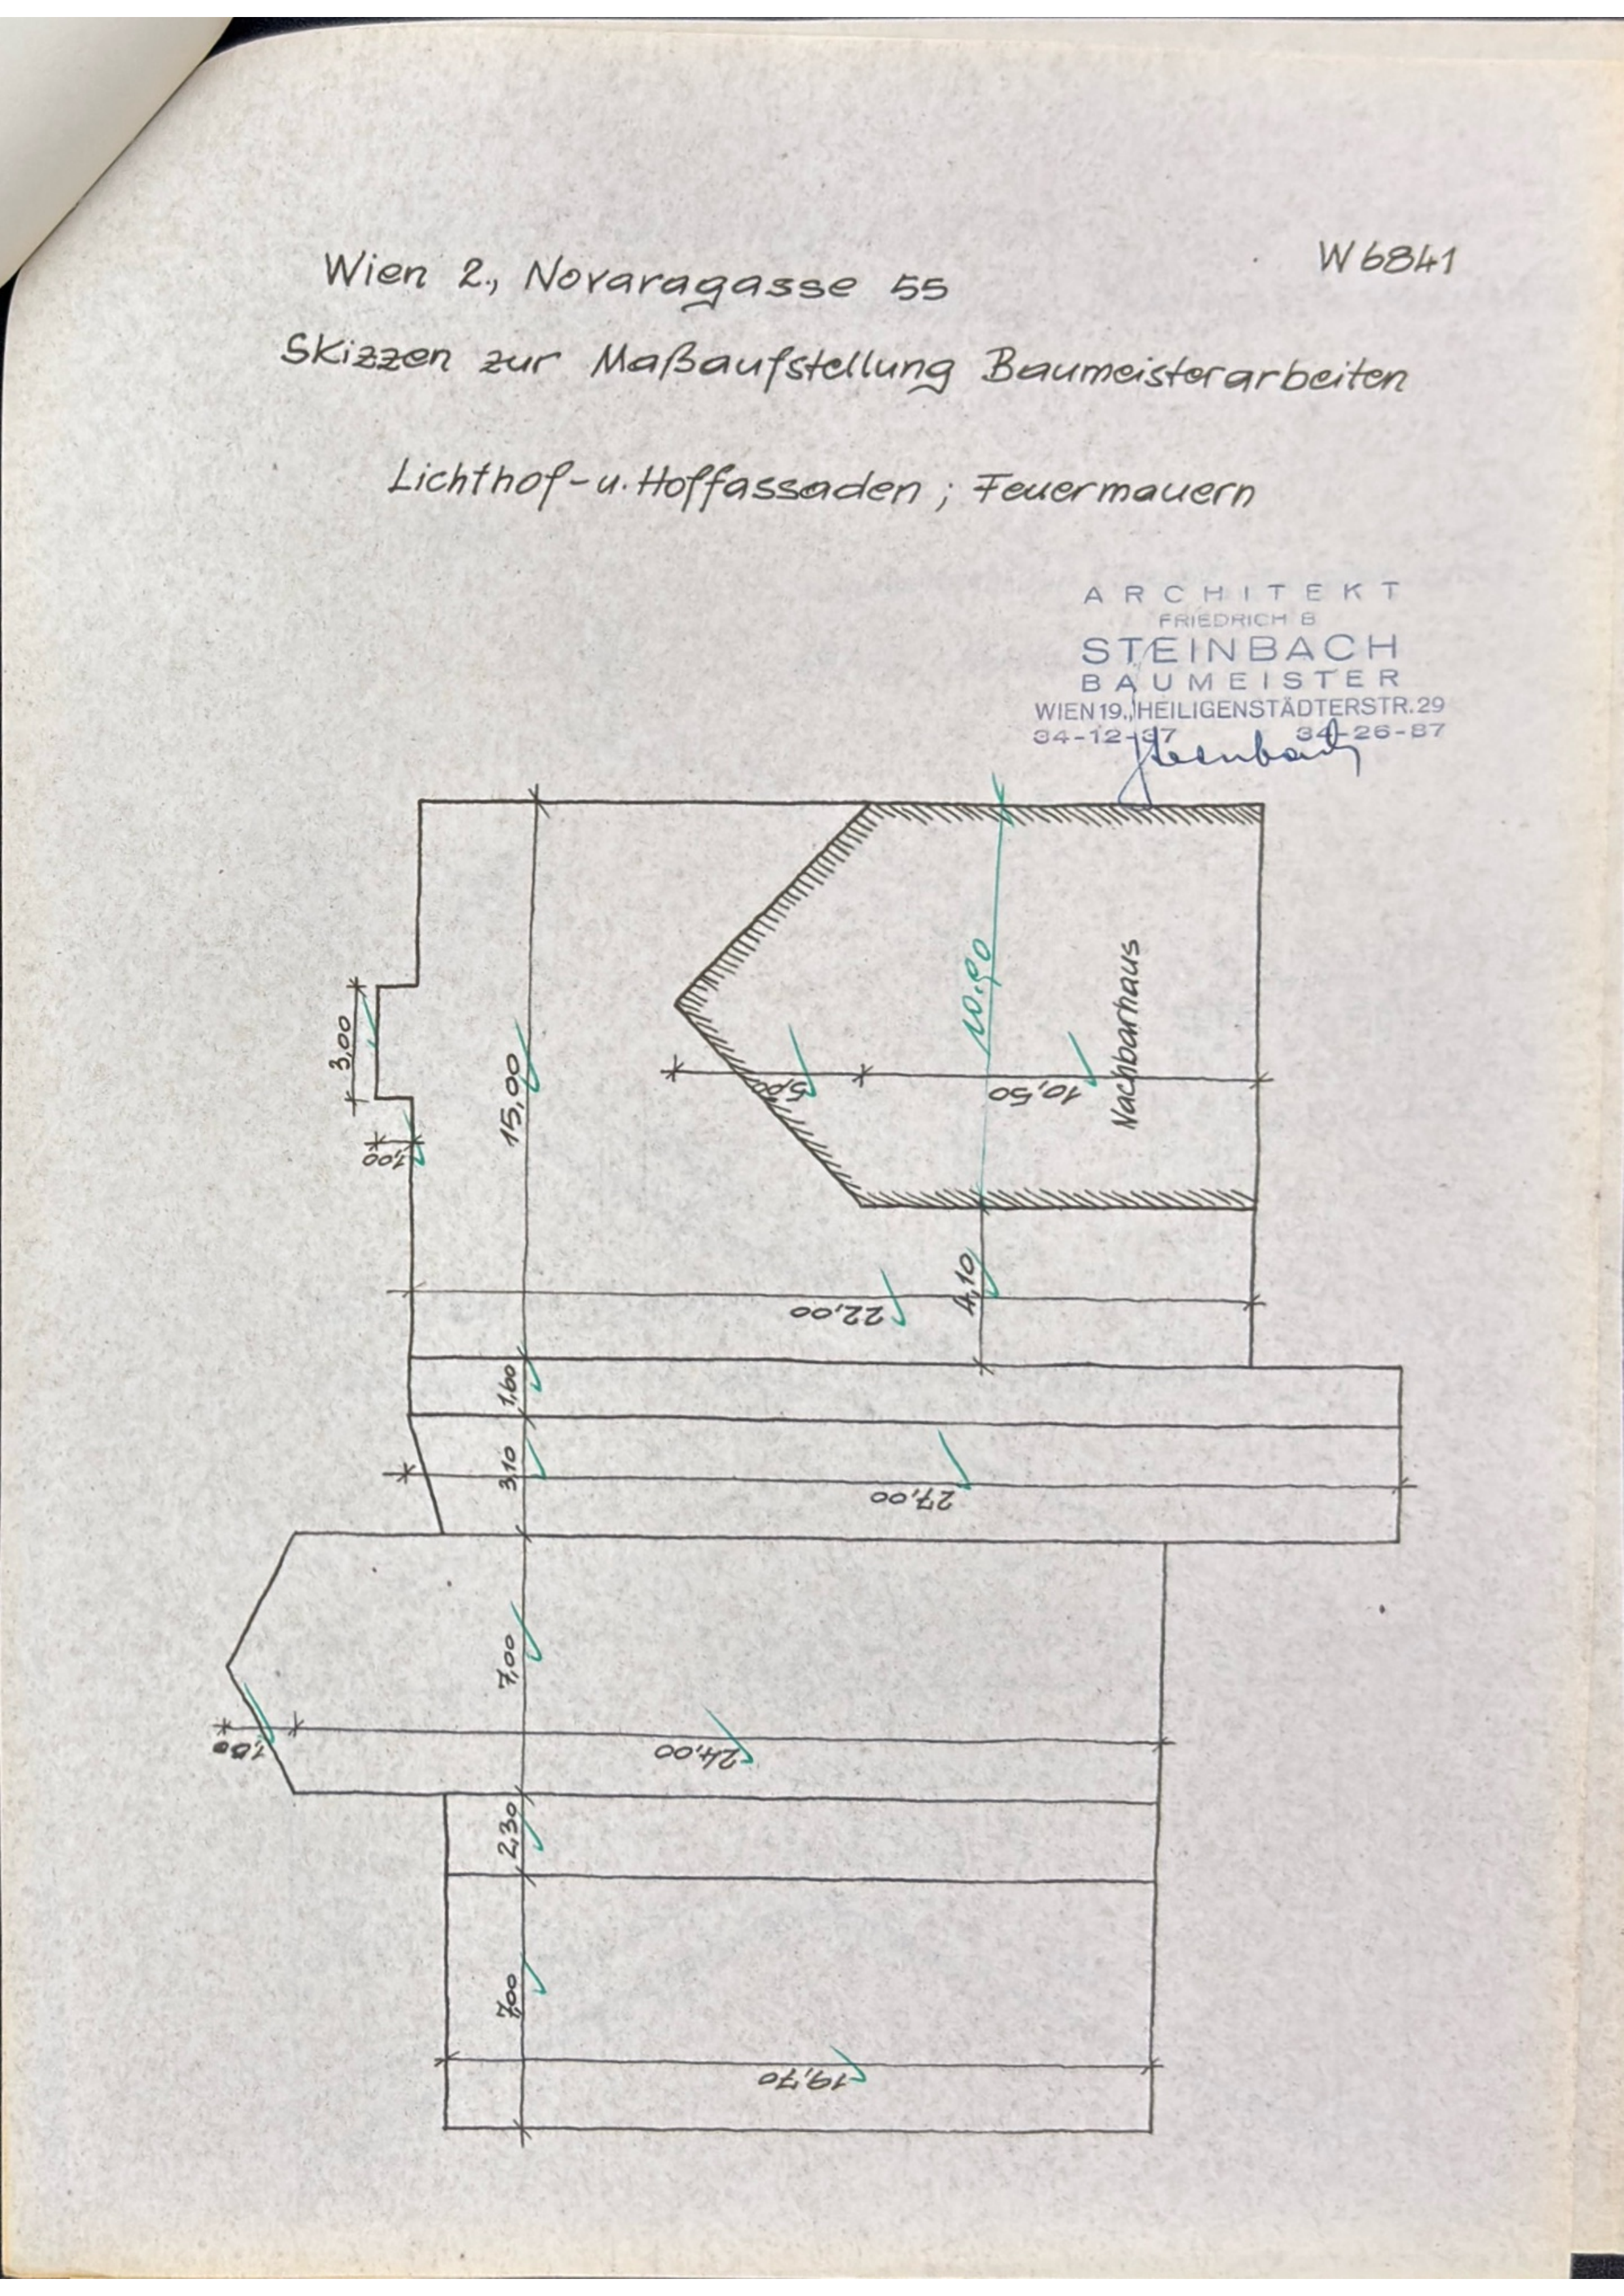 Wien 2., Novaragasse 55
W6841
Skizzen zur Maßaufstellung Baumeisterarbeiten
Lichthof-u. Hoffassaden ; Feuermauern
ARCHITEKT
FRIEDRICH B
STEINBACH
BAUMEISTER
WIEN 19., HEILIGENSTÄDTERSTR. 29
34-12-37 34-26-87
Steinbach
3,00
1,00
15,00
5,00
10.90
10,50
Nachbarhaus
22,00
4,10
1,60
3,10
27,00
7,00
1,00
24,00
2,30
7,00
19,70